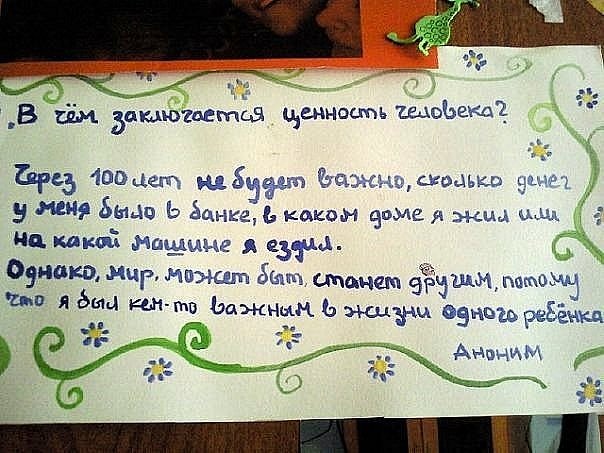 В чём заключается ценность человека?
Через 100 лет не будет важно, сколько денег
у меня было в банке, в каком доме я жил или
на какой машине я ездил.
Однако, мир, может быт, станет другим, потому
что я был кем-то важным в жизни одного ребёнка
Аноним